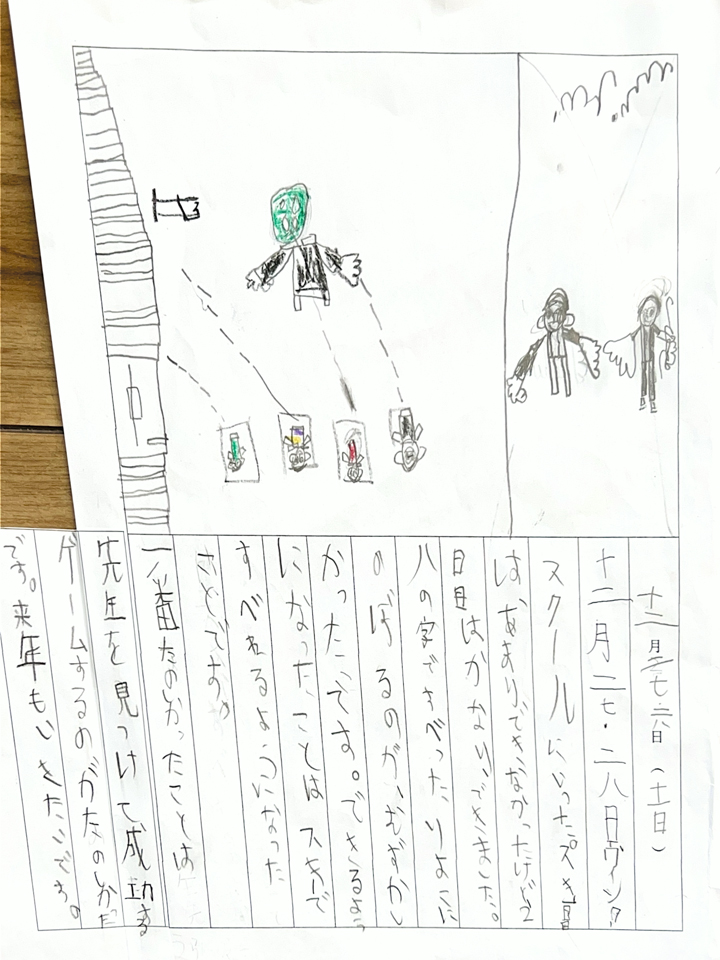 十二月二七・二八日(土日)
十二月二七・二八日ヴィンタ
スクールにいったよ。一日目
はあまりできなかったけど2
日目はかなりできました。
八の字ですべったりよこに
のぼるのがむずかし
かったてす。できるよう
になったことはスキーで
すべれるようになった
ことです。
一番たのかったことは
先生を見つけて成功する
ゲームするのがたのしかた
です。来年もいきたいです。